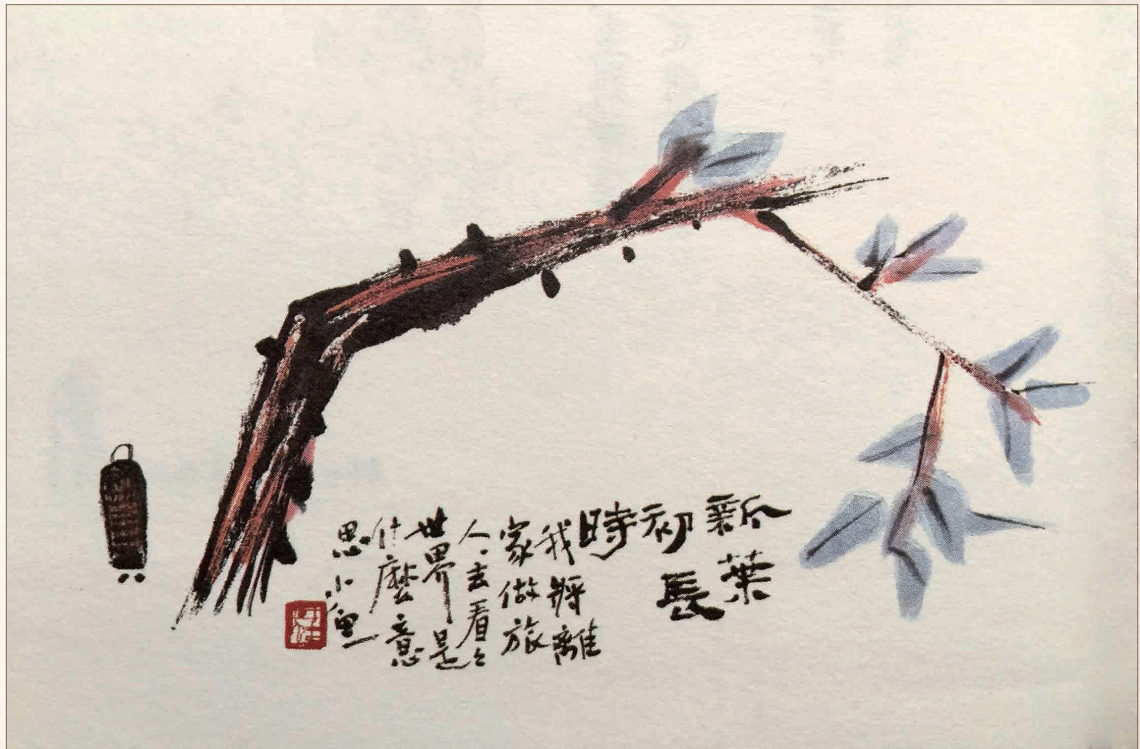 新葉
初長
時
我將離
家做旅
人、去看々
世界是
什麼意
思 小魚